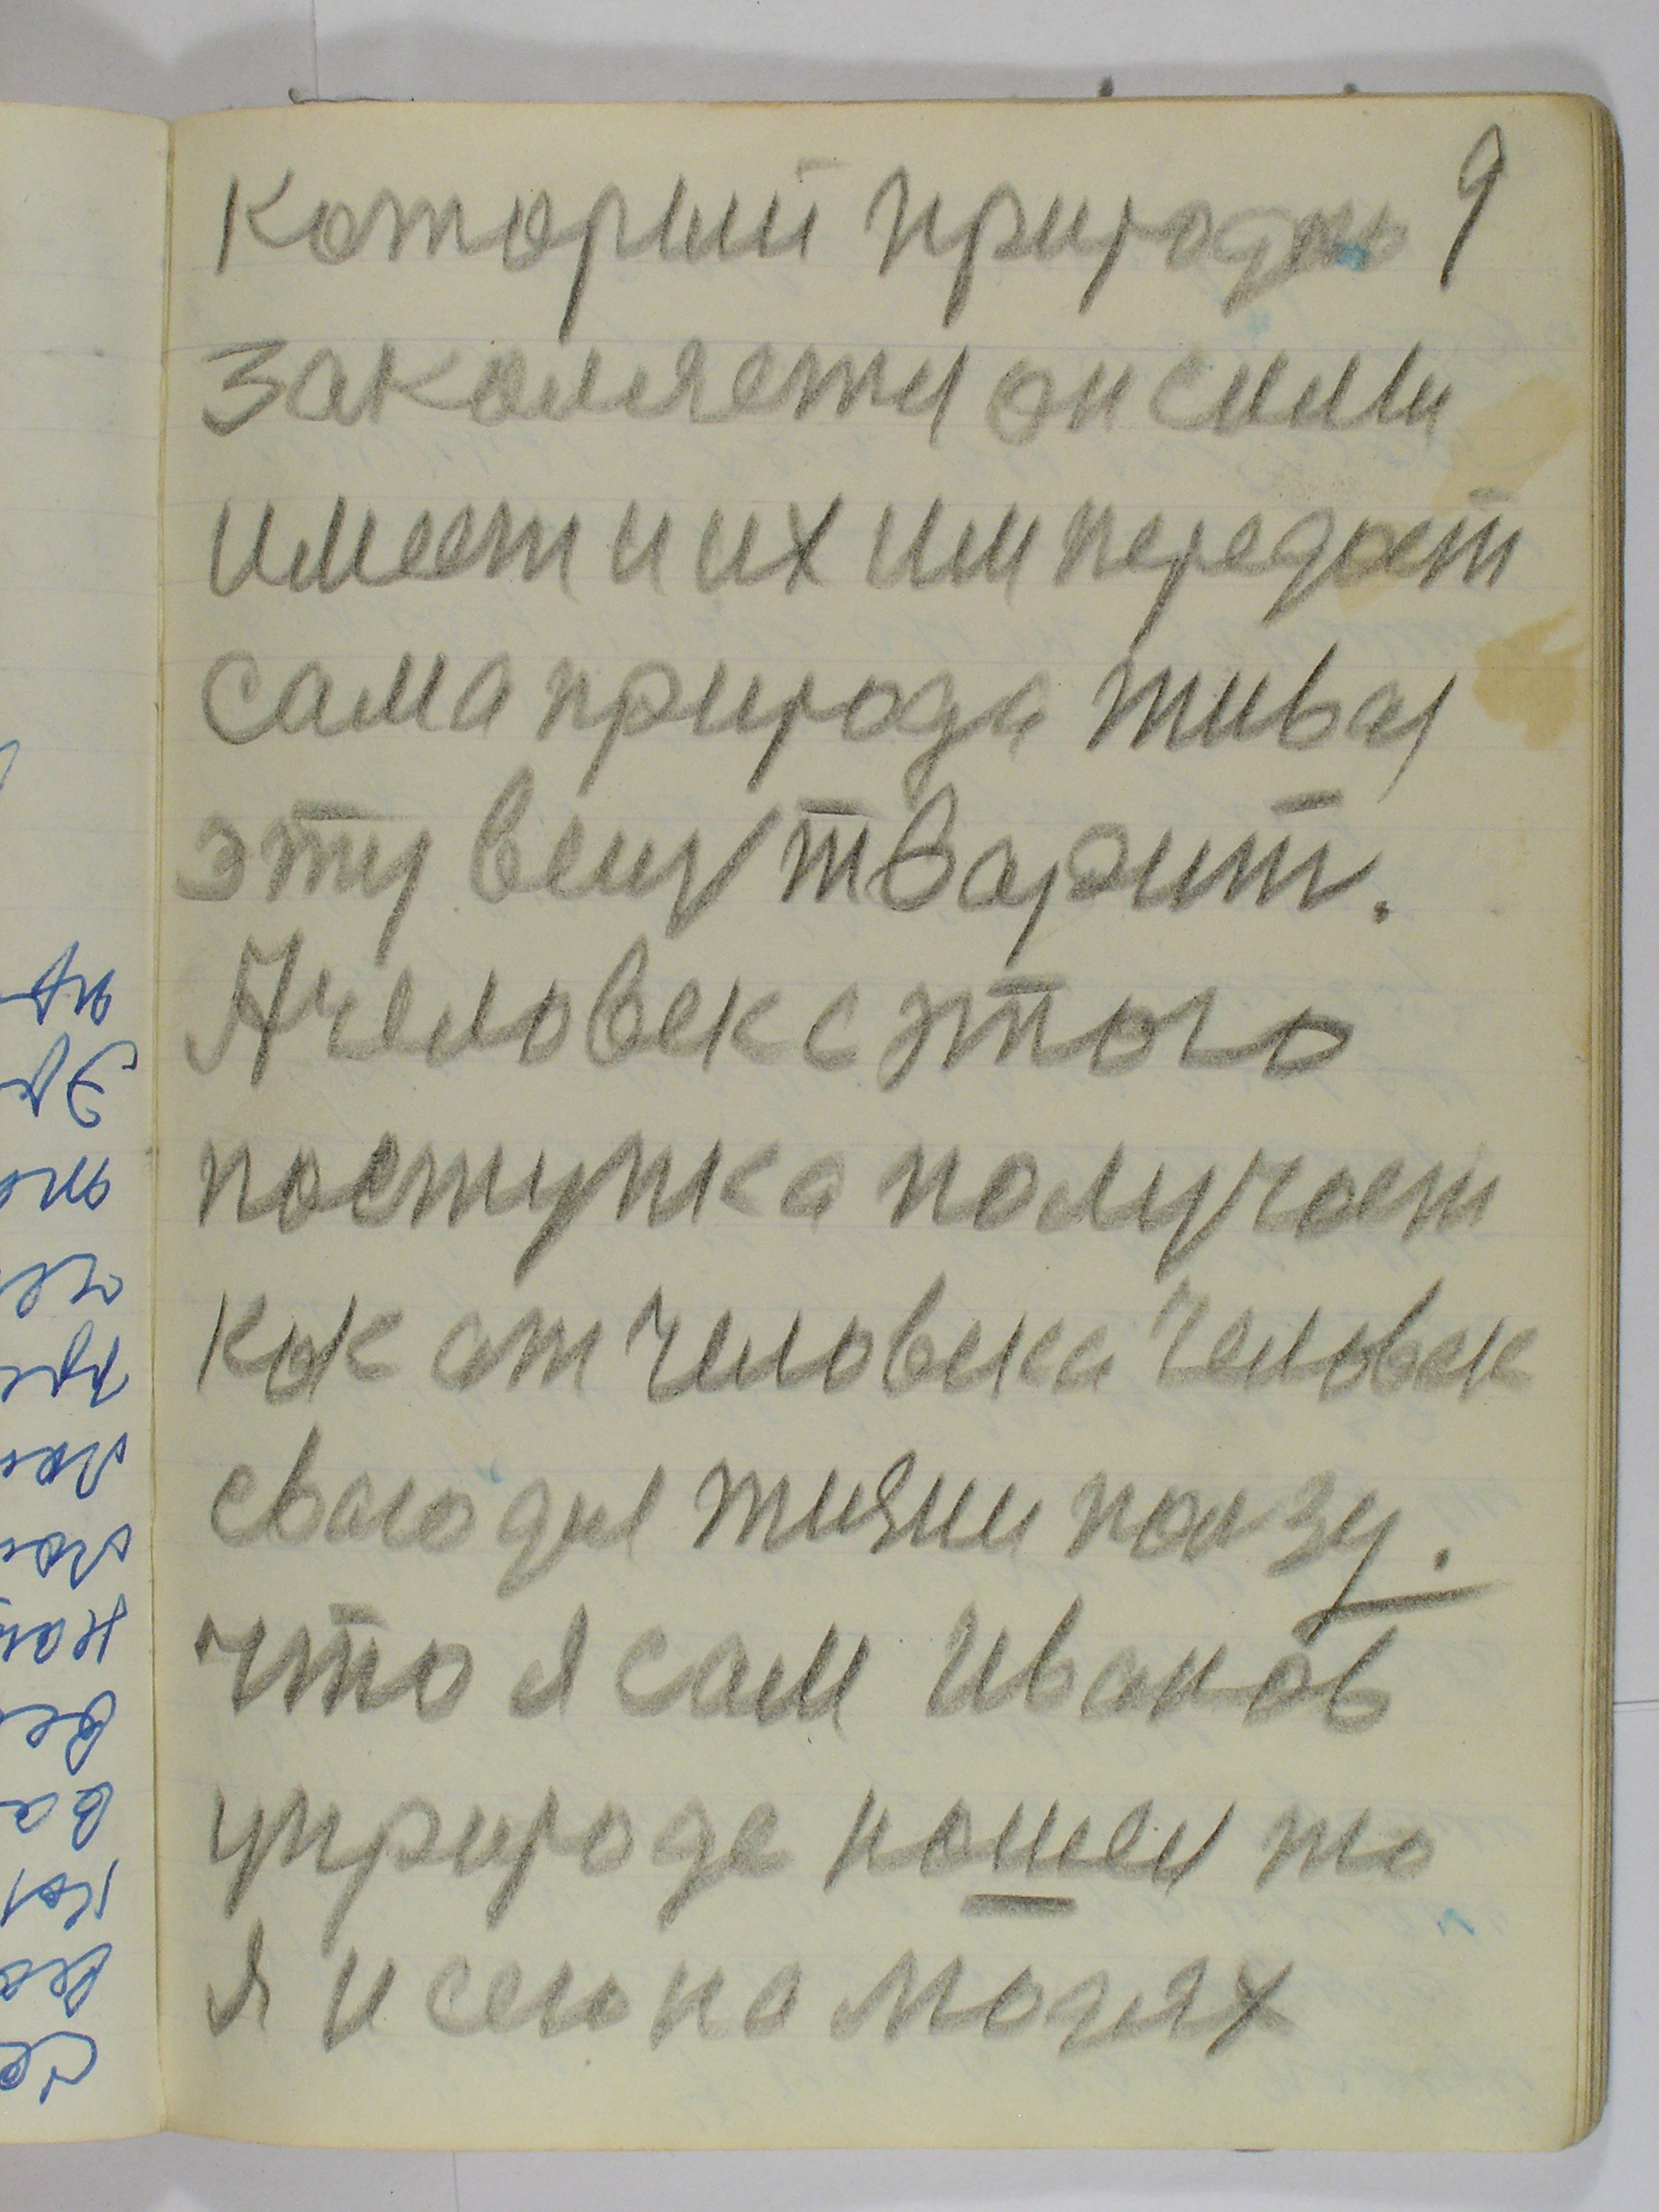 9
который природою
закаляется он силы
имеет и их им передает
сама природа жива
эту вещ тварит.
А человек с этого
поступка получает
как от человека человек
сваго для жизни ползу.
что я сам Иванов
уприроде нашел то
я и сею на людях